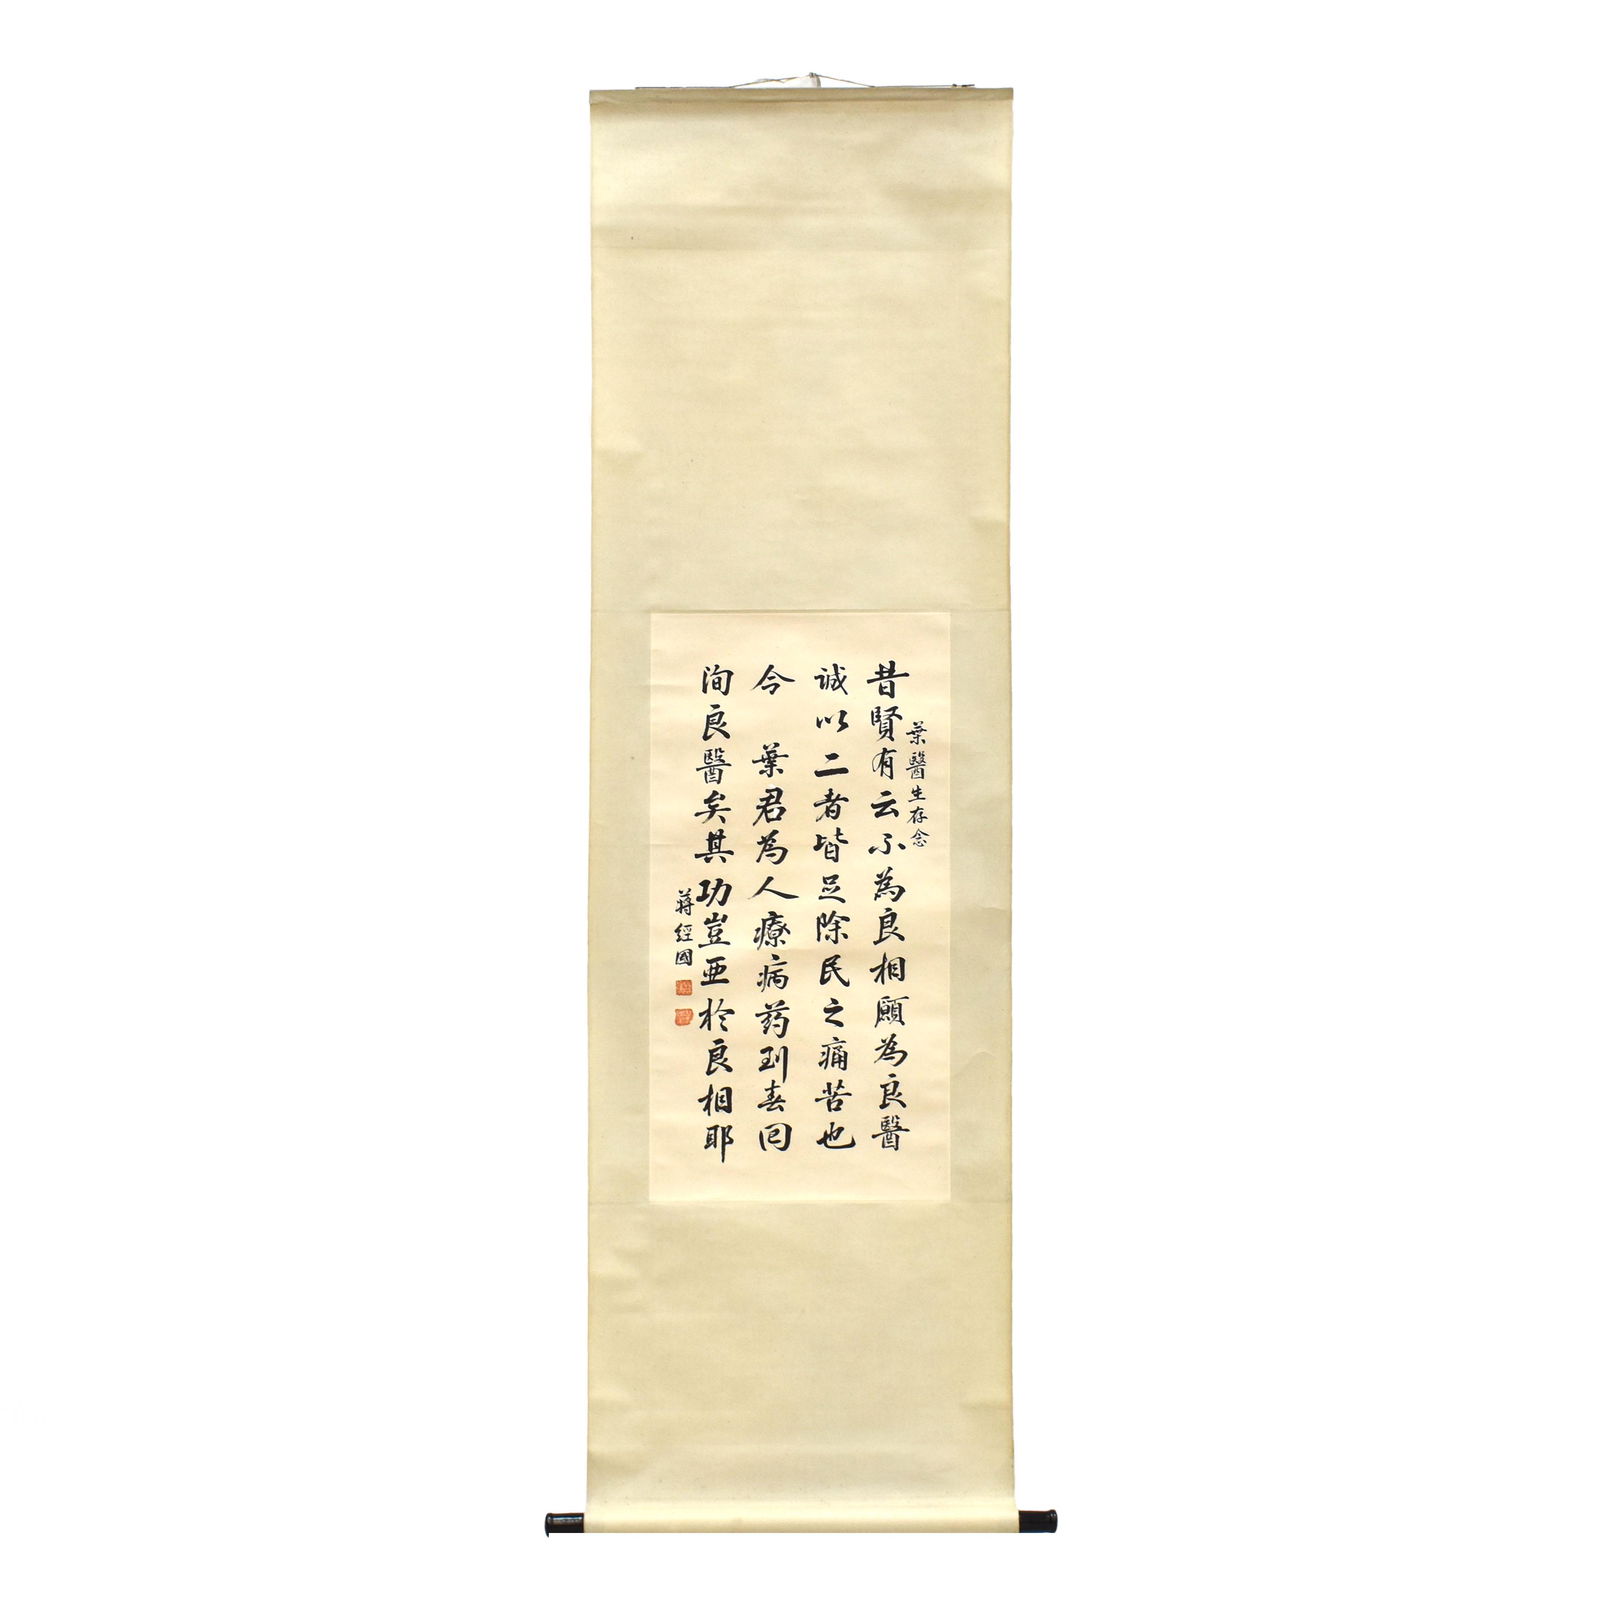 葉醫生存念
昔賢有云不為良相願為良醫
誠以二者皆足除民之痛苦也
今 葉君為人療病药到春回
洵良醫矣其功豈亞於良相耶
蔣經國